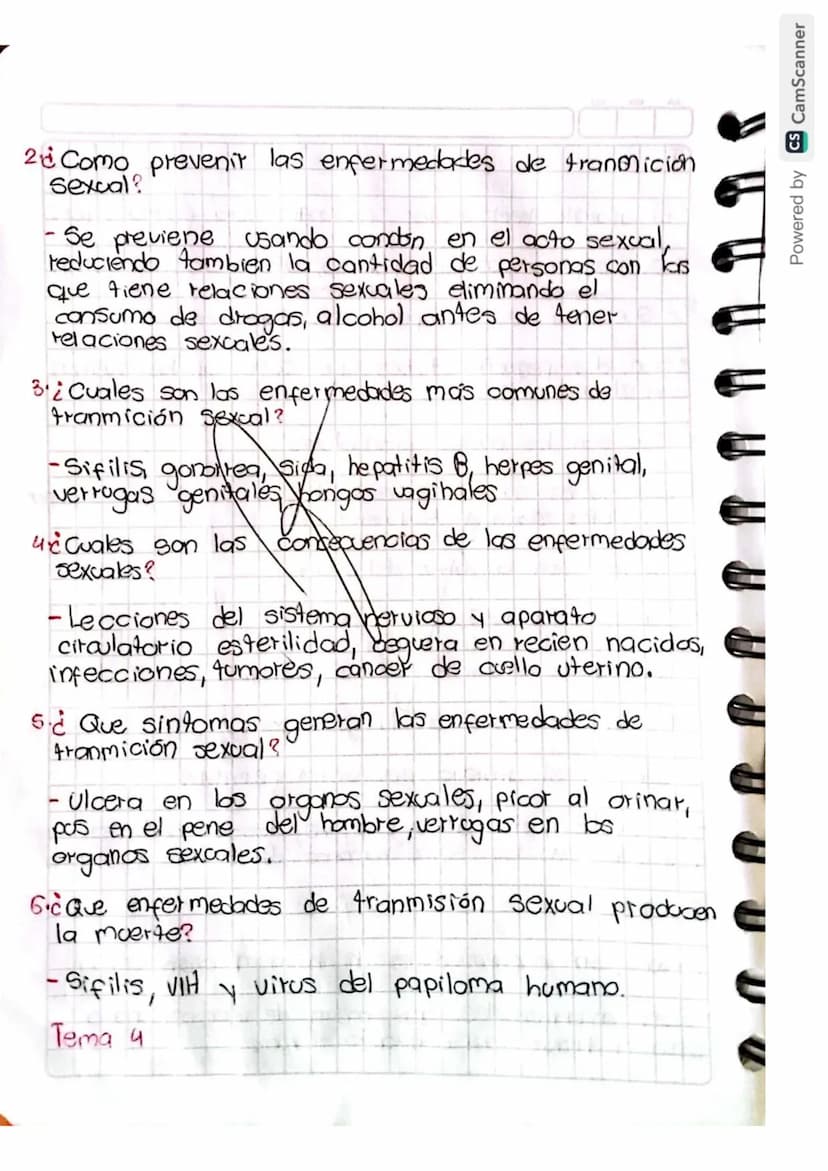 2¿Como prevenir las enfermedades de tranmición
sexual?
- Se previene usando condón en el acto sexual,
reduciendo tambien la cantidad de personas con las
que tiene relaciones sexuales eliminando el
consumo de drogas, alcohol antes de tener
relaciones sexcales.
3.¿Cuales son las enfermedades mas comunes de
tranmición sexcal?
- Sifilis, gonorrea, sida, hepatitis B, herpes genital,
verrugas genitales, hongos vaginales
4¿Cuales son las consequencias de las enfermedades
sexuales?
- Lecciones del sistema nervioso y aparato
circulatorio esterilidad, ceguera en recien nacidos,
infecciones, tumores, cancer de cuello uterino.
5.¿ Que sintomas generan las enfermedades de
tranmición sexual?
- Ulcera en los organos sexuales, picor al orinar,
pus en el pene del hombre, verrugas en los
organos sexcales.
6.¿Que enfermedades de tranmisión sexual producen
la muerte?
- Sifilis, VIH y virus del papiloma humano.
Tema 4
Powered by CS CamScanner